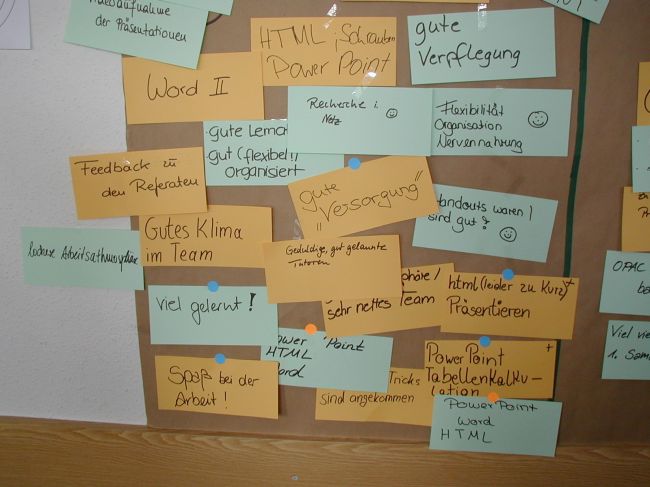 der Präsentationen
HTML, Schrauben
Power Point
gute
Verpflegung
Word II
Recherche i.
Netz
Flexibilität
Organisation
Nervennahrung
gute
gut (flexibel!)
organisiert
Feedback zu
den Referaten
gute
"Versorgung"
waren
sind gut!
Gutes Klima
im Team
Geduldige, gut gelaunte
Tutoren
sehr nettes Team
html (leider zu kurz) +
Präsentieren
viel gelernt!
Power Point
HTML
Word
PowerPoint +
Tabellenkalku-
lation
Spaß bei der
Arbeit!
Tricks
sind angekommen
PowerPoint
Word
HTML
OPAC
Viel
1. Sem